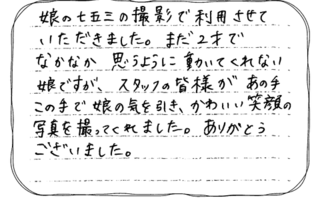 娘の七五三の撮影で利用させて
いただきました。まだ2才で
なかなか 思うように動いてくれない
娘ですが、スタッフの皆様が あの手
この手で娘の気を引き、かわいい笑顔の
写真を撮ってくれました。ありがとう
ございました。